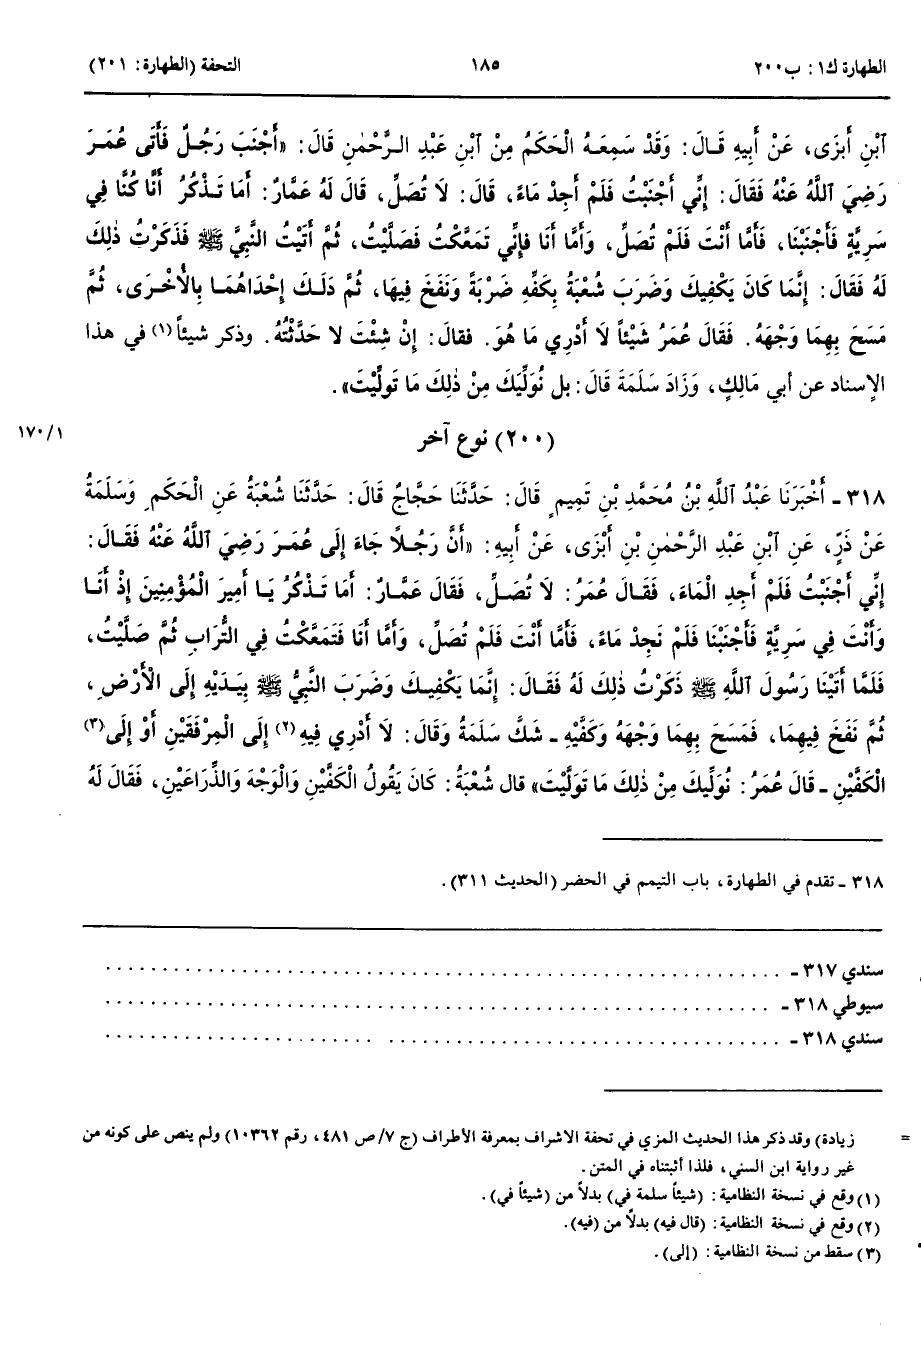 الطهارة ك١: ب٢٠٠ ١٨٥ التحفة (الطهارة: ٢٠١)
ٱبْنِ أَبزَى، عَنْ أَبِيهِ قَـالَ: وَقَدْ سَمِعَـهُ الْحَكَمُ مِنْ ٱبْنِ عَبْدِ الـرَّحْمٰنِ قَالَ: «أَجْنَبَ رَجُـلٌ فَأَتَى عُمَـرَ
رَضِيَ ٱللَّهُ عَنْهُ فَقَالَ: إِنِّي أَجْنَبْتُ فَلَمْ أَجِدْ مَاءً، قَالَ: لاَ تُصَلِّ، قَالَ لَهُ عَمَّارٌ: أَمَا تَـذْكُرُ أَنَّا كُنَّا فِي
سَرِيَّةٍ فَأَجْنَبْنَا، فَأَمَّا أَنْتَ فَلَمْ تُصَلِّ، وَأَمَّا أَنَا فَإِنِّي تَمَعَّكْتُ فَصَلَّيْتُ، ثُمَّ أَتَيْتُ النَّبِيَّ ﷺ فَذَكَرْتُ ذٰلِكَ
لَهُ فَقَالَ: إِنَّمَا كَانَ يَكْفِيكَ وَضَرَبَ شُعْبَةُ بِكَفِّهِ ضَرْبَةً وَنَفَخَ فِيهَا، ثُمَّ دَلَـكَ إِحْدَاهُمَـا بِالْأُخْـرَى، ثُمَّ
مَسَحَ بِهِمَا وَجْهَهُ. فَقَالَ عُمَرُ شَيْئاً لاَ أَدْرِي مَا هُوَ. فقالَ: إِنْ شِئْتَ لا حَدَّثْتُهُ. وذكر شيئاً(١) في هذا
الإسناد عن أبي مَالِكٍ، وَزَادَ سَلَمَةَ قَالَ: بل نُوَلِّيَكَ مِنْ ذٰلِكَ مَا تَوَلَّيْتَ».
١٧٠/١ (٢٠٠) نوع آخر
٣١٨ - أَخْبَرَنَا عَبْدُ ٱللَّهِ بْنُ مُحَمَّدِ بْنِ تَمِيمٍ قَالَ: حَدَّثَنَا حَجَّاجٌ قَالَ: حَدَّثَنَا شُعْبَةُ عَنِ الْحَكَمِ وَسَلَمَةُ
عَنْ ذَرٍّ، عَنِ ٱبْنِ عَبْدِ الرَّحْمٰنِ بْنِ أَبْزَى، عَنْ أَبِيهِ: «أَنَّ رَجُـلاً جَاءَ إِلَى عُمَـرَ رَضِيَ ٱللَّهُ عَنْهُ فَقَـالَ:
إِنِّي أَجْنَبْتُ فَلَمْ أَجِدِ الْمَاءَ، فَقَـالَ عُمَرُ: لاَ تُصَـلِّ، فَقَالَ عَمَّـارٌ: أَمَا تَـذْكُرُ يَـا أَمِيرَ الْمُؤْمِنِينَ إِذْ أَنَـا
وَأَنْتَ فِي سَرِيَّةٍ فَأَجْنَبْنَا فَلَمْ نَجِدْ مَاءً، فَأَمَّا أَنْتَ فَلَمْ تُصَلِّ، وَأَمَّا أَنَا فَتَمَعَّكْتُ فِي التُّرَابِ ثُمَّ صَلَّيْتُ،
فَلَمَّا أَتَيْنَا رَسُولَ ٱللَّهِ ﷺ ذَكَرْتُ ذٰلِكَ لَهُ فَقَالَ: إِنَّمَا يَكْفِيكَ وَضَرَبَ النَّبِيُّ ﷺ بِيَـدَيْهِ إِلَى الْأَرْضِ،
ثُمَّ نَفَخَ فِيهِمَا، فَمَسَحَ بِهِمَا وَجْهَهُ وَكَفَّيْهِ - شَكَّ سَلَمَةُ وَقَالَ: لاَ أَدْرِي فِيهِ(٢) إِلَى الْمِرْفَقَيْنِ أَوْ إِلَى(٣)
الْكَفَّيْنِ - قَالَ عُمَرُ: نُوَلِّيكَ مِنْ ذٰلِكَ مَا تَوَلَّيْتَ» قال شُعْبَةُ: كَانَ يَقُولُ الْكَفَّيْنِ وَالْوَجْهَ وَالذِّرَاعَيْنِ، فَقَالَ لَهُ
٣١٨ - تقدم في الطهارة، باب التيمم في الحضر (الحديث ٣١١).
سندي ٣١٧ - ................................................................
سيوطي ٣١٨ - ................................................................
سندي ٣١٨ - ................................................................
= زيادة) وقد ذكر هذا الحديث المزي في تحفة الاشراف بمعرفة الأطراف (ج ٧/ ص ٤٨١، رقم ١٠٣٦٢) ولم ينص على كونه من
غير رواية ابن السني، فلذا أثبتناه في المتن.
(١) وقع في نسخة النظامية: (شيئاً سلمة في) بدلاً من (شيئاً في).
(٢) وقع في نسخة النظامية: (قال فيه) بدلاً من (فيه).
(٣) سقط من نسخة النظامية: (إلى).